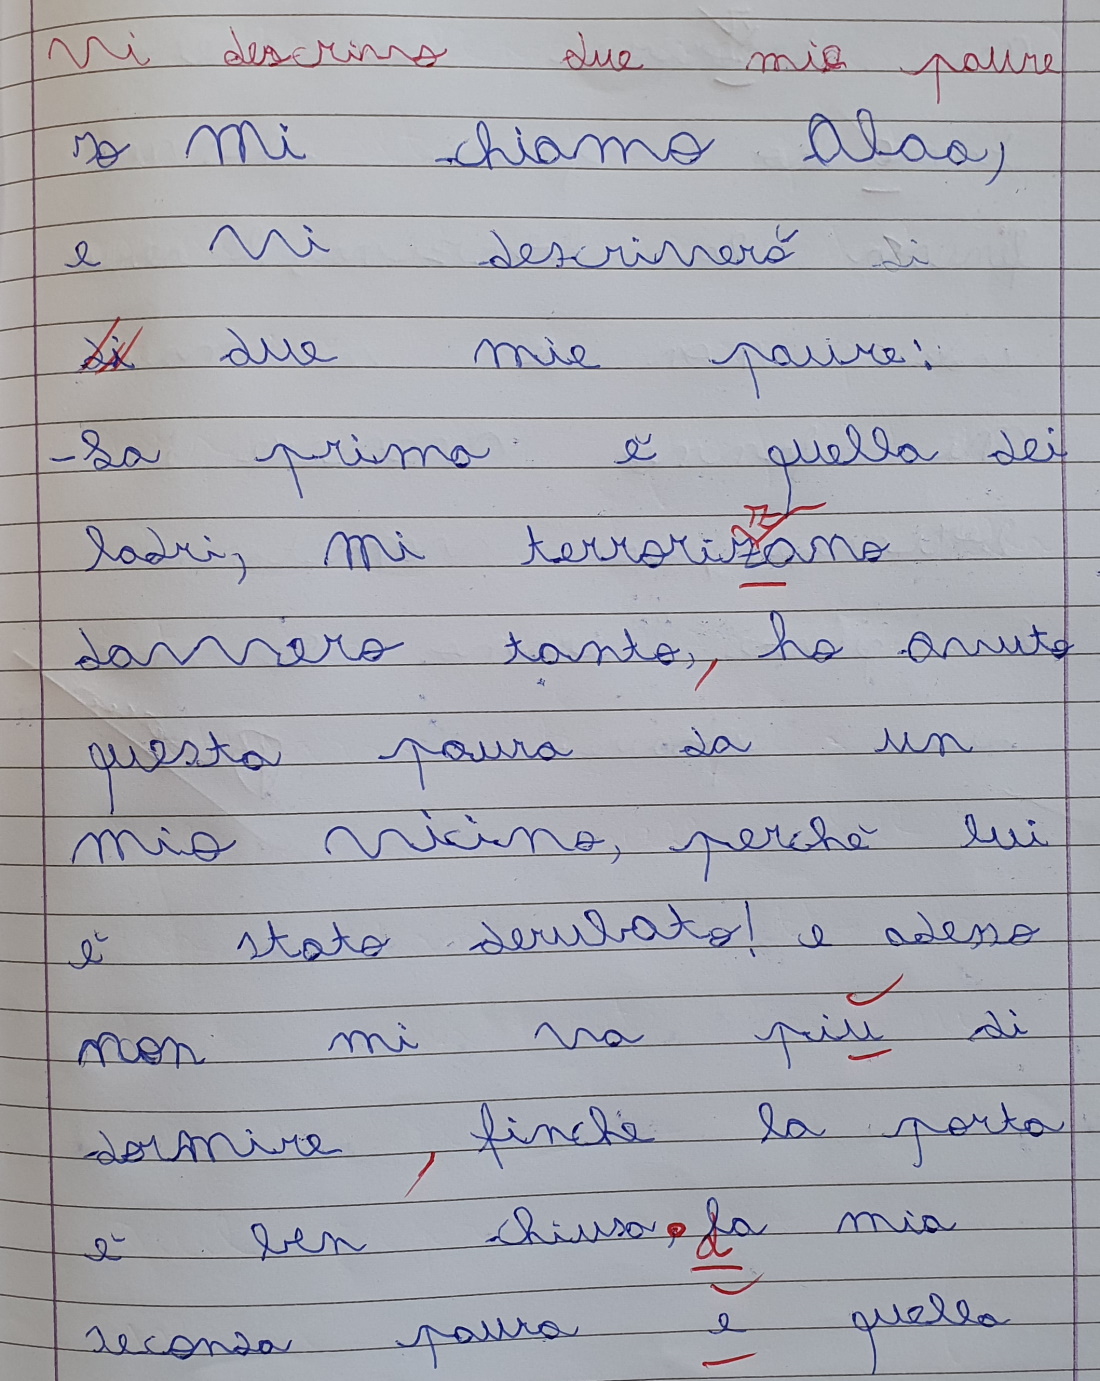 Vi descrivo due mie paure
Io Mi chiamo Alaa,
e Vi descriverò di
di due mie paure:
-La prima è quella dei
zz
ladri, mi terrorizano
davvero tanto, ho avuto
questa paura da un
mio vicino, perchè lui
è stato derubato! e adesso
non mi va piu di
dormire, finchè la porta
è ben chiusa. La mia
seconda paura e quella